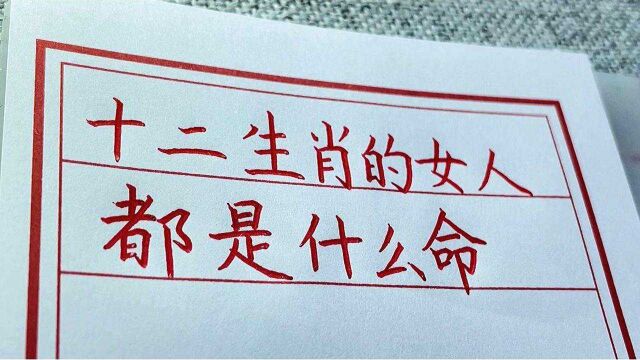 十二生肖的女人
都是什么命